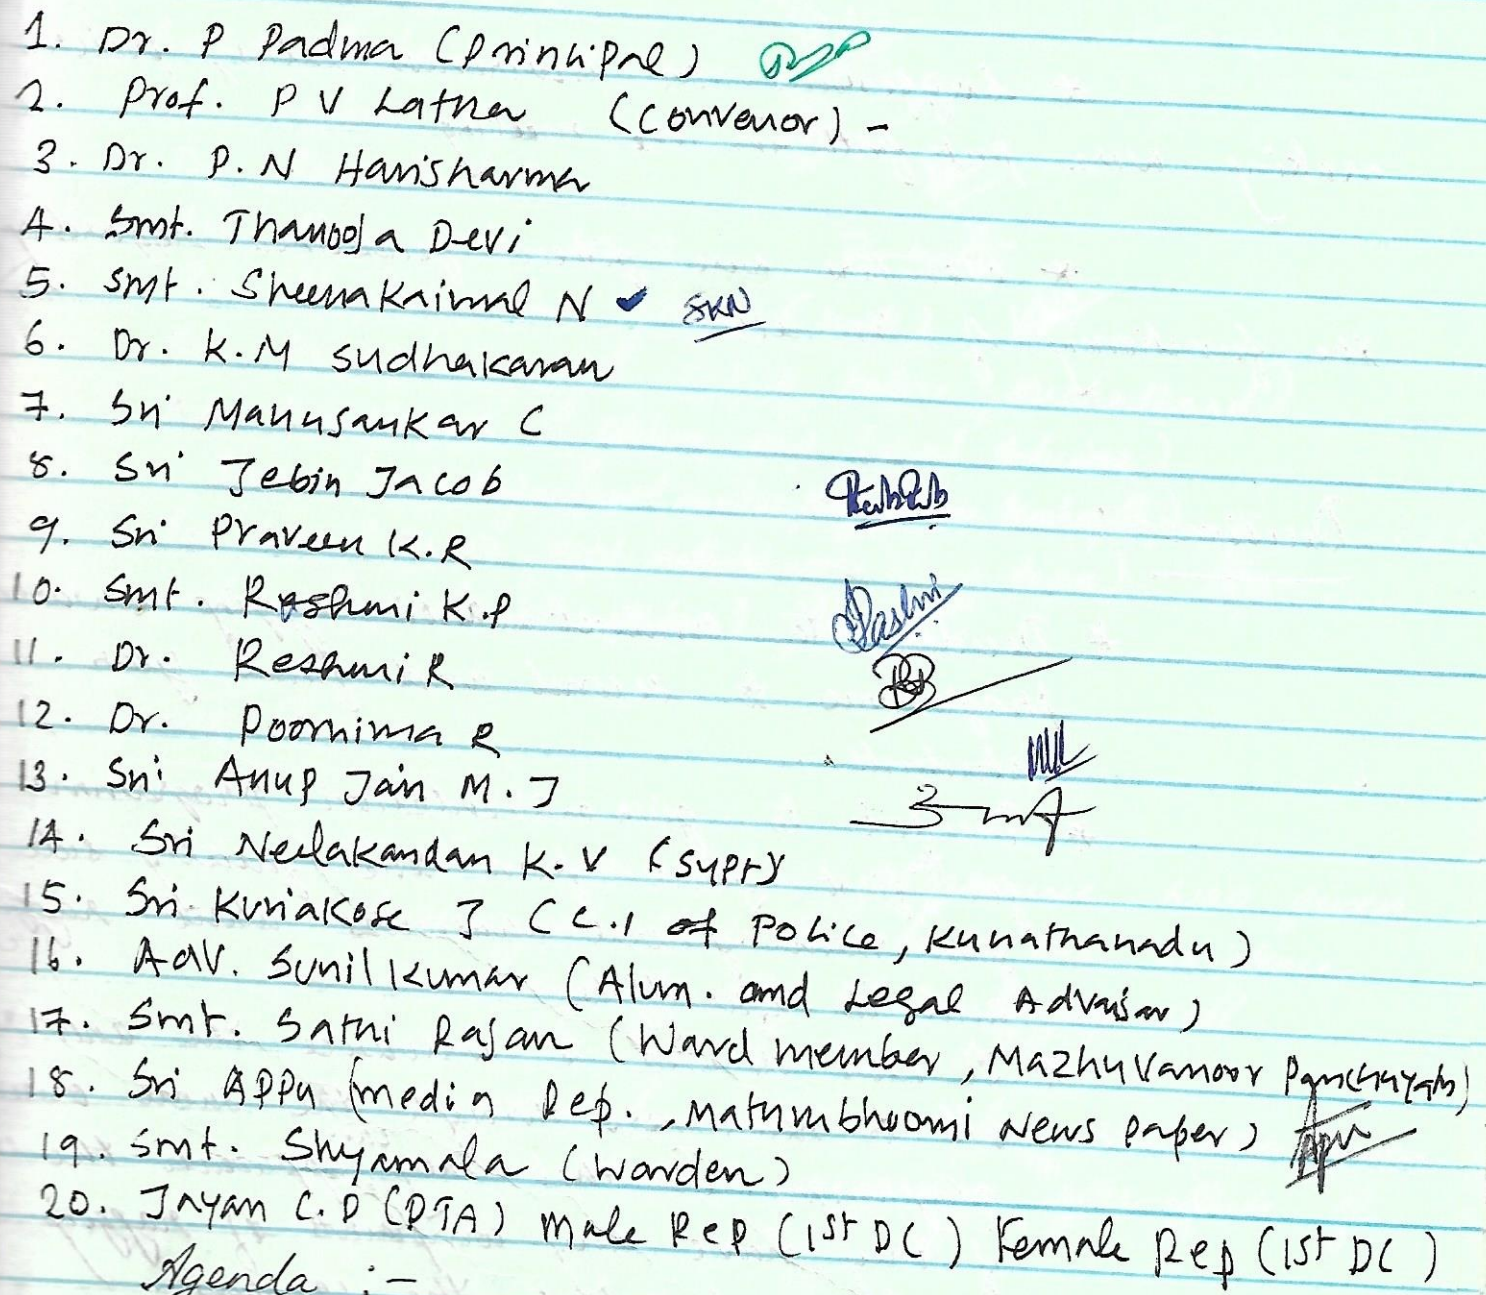 1. Dr. P Padma (Principal)
2. Prof. P V Latha (Convenor) -
3. Dr. P.N Harisharma
4. Smt. Thanooja Devi
5. Smt. Sheena Kaimal N ✓ SKN
6. Dr. K.M Sudhakaran
7. Sri Manusankar C
8. Sri Jebin Jacob
9. Sri Praveen K.R
10. Smt. Reshmi K.P Rashmi
11. Dr. Reshmi R
12. Dr. Poornima R
13. Sri Anup Jain M.J
14. Sri Neelakandan K.V (Supt)
15. Sri Kuriakose J (C.I of Police, Kunathanadu)
16. Adv. Sunilkumar (Alum. and Legal Advaisar)
17. Smt. Sathi Rajan (Ward member, Mazhuvanoor Panchayath)
18. Sri Appu (media Rep., Mathrubhoomi News paper)
19. Smt. Shyamala (Warden)
20. Jayan C.D (PTA) Male Rep (1st DC) Female Rep (1st DC)
Agenda :-